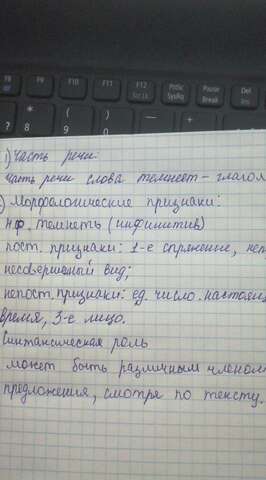 F8 F9 F10 F11 F12 PrtSc Pause Del
Scr Lk SysRq Break
* ( )
8 9 0
1) Часть речи:
Часть речи слова темнеет – глагол
Морфологические признаки:
н.ф. темнеть (инфинитив)
пост. признаки: 1-е спряжение, неп
несовершеный вид;
непост. признаки: ед. число. настоящ
время, 3-е лицо.
Синтаксическая роль
может быть различным членом
предложения, смотря по тексту.